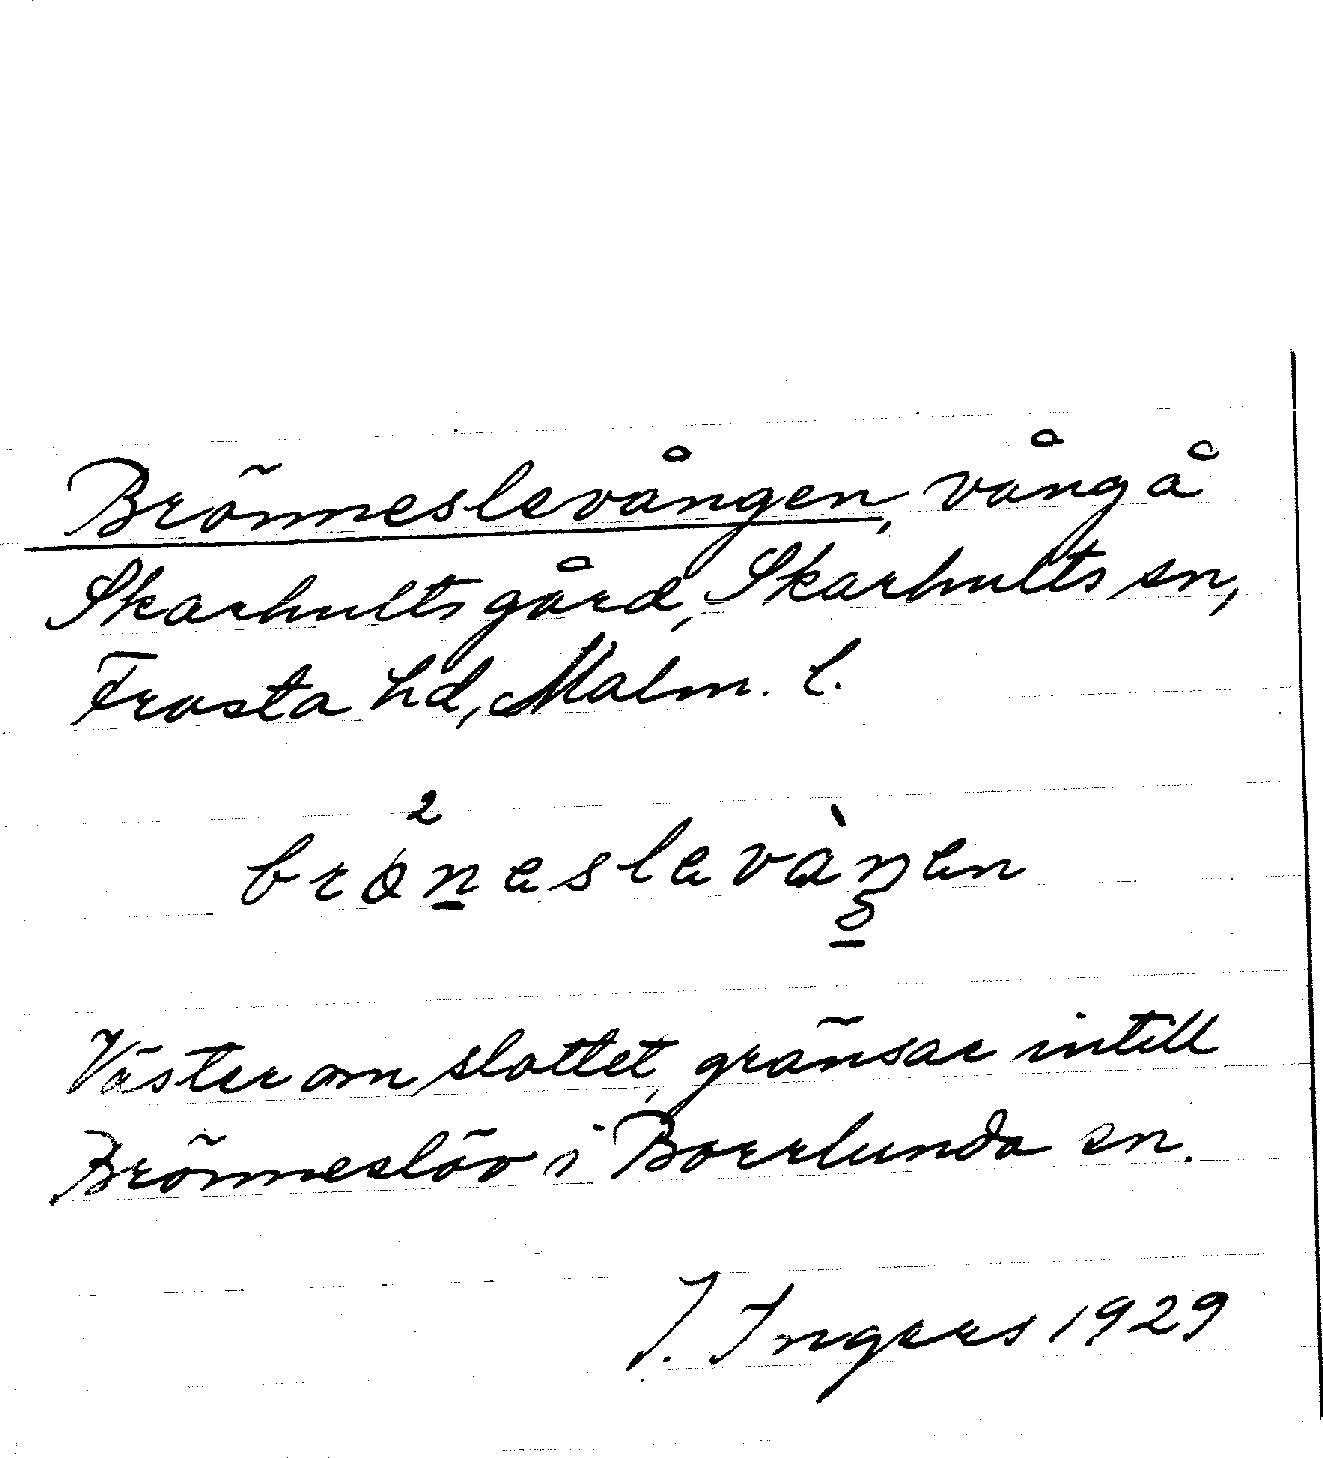 Brönneslevången, vång å
Skarhults gård, Skarhults sn,
Frosta hd, Malm. l.
Väster om slottet, gränsar intill
Brönneslöv i Borrlunda sn.
I. Ingers 1929